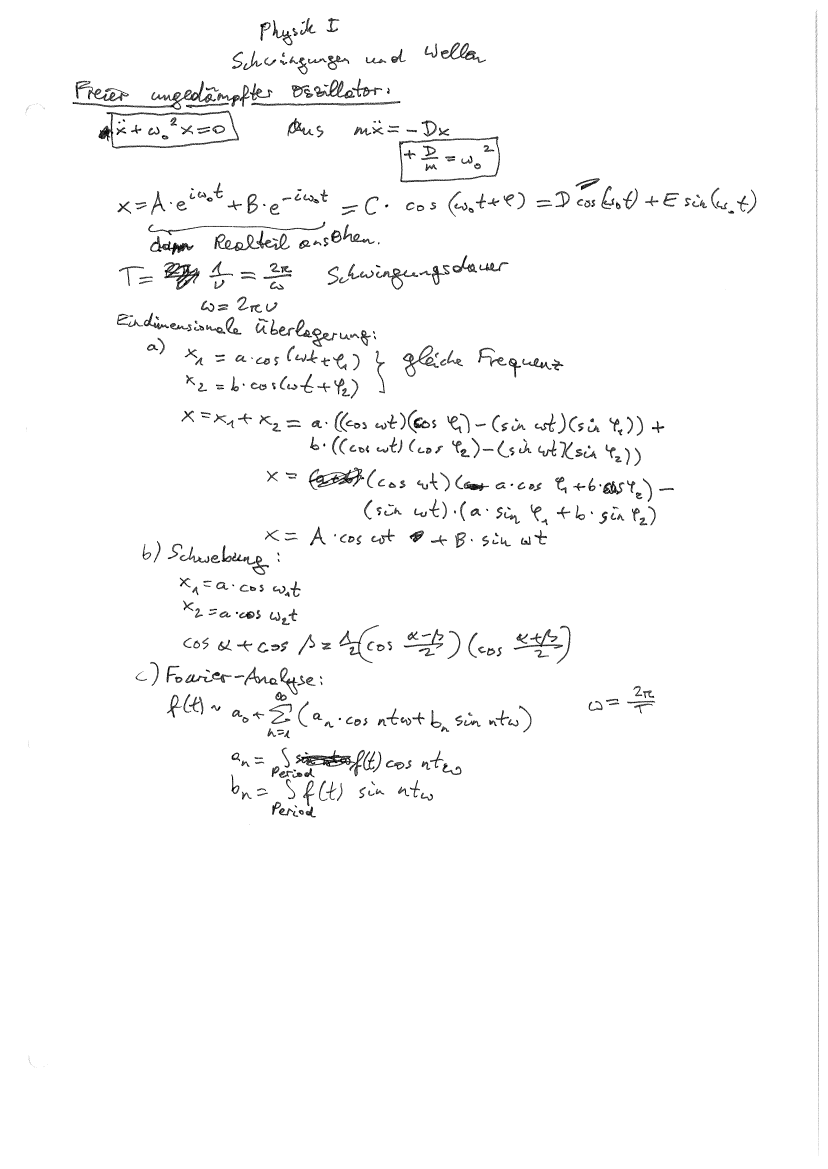 Physik I
Schwingungen und Wellen
Freier ungedämpfter Oszillator:
ẍ + ω₀² x = 0 Aus mẍ = - Dx
+ D/m = ω₀²
x = A·e^{iω₀t} + B·e^{-iω₀t} = C· cos (ω₀t + φ) = D cos(ω₀t) + E sin(ω₀t)
dann Realteil ansehen.
T = 1/ν = 2π/ω Schwingungsdauer
ω = 2πν
Eindimensionale Überlagerung:
a) x₁ = a·cos(ωt + φ₁) } gleiche Frequenz
x₂ = b·cos(ωt + φ₂)
x = x₁ + x₂ = a·((cos ωt)(cos φ₁) - (sin ωt)(sin φ₁)) +
b·((cos ωt)(cos φ₂) - (sin ωt)(sin φ₂))
x = (cos ωt)(a·cos φ₁ + b·cos φ₂) -
(sin ωt)·(a·sin φ₁ + b·sin φ₂)
x = A·cos ωt + B·sin ωt
b) Schwebung:
x₁ = a·cos ω₁t
x₂ = a·cos ω₂t
cos α + cos β = 1/2 (cos (α-β)/2) (cos (α+β)/2)
c) Fourier-Analyse:
f(t) ~ a₀ + ∑_{n=1}^{∞} (aₙ·cos ntω + bₙ sin ntω) ω = 2π/T
aₙ = ∫_{Period} f(t) cos ntω
bₙ = ∫_{Period} f(t) sin ntω